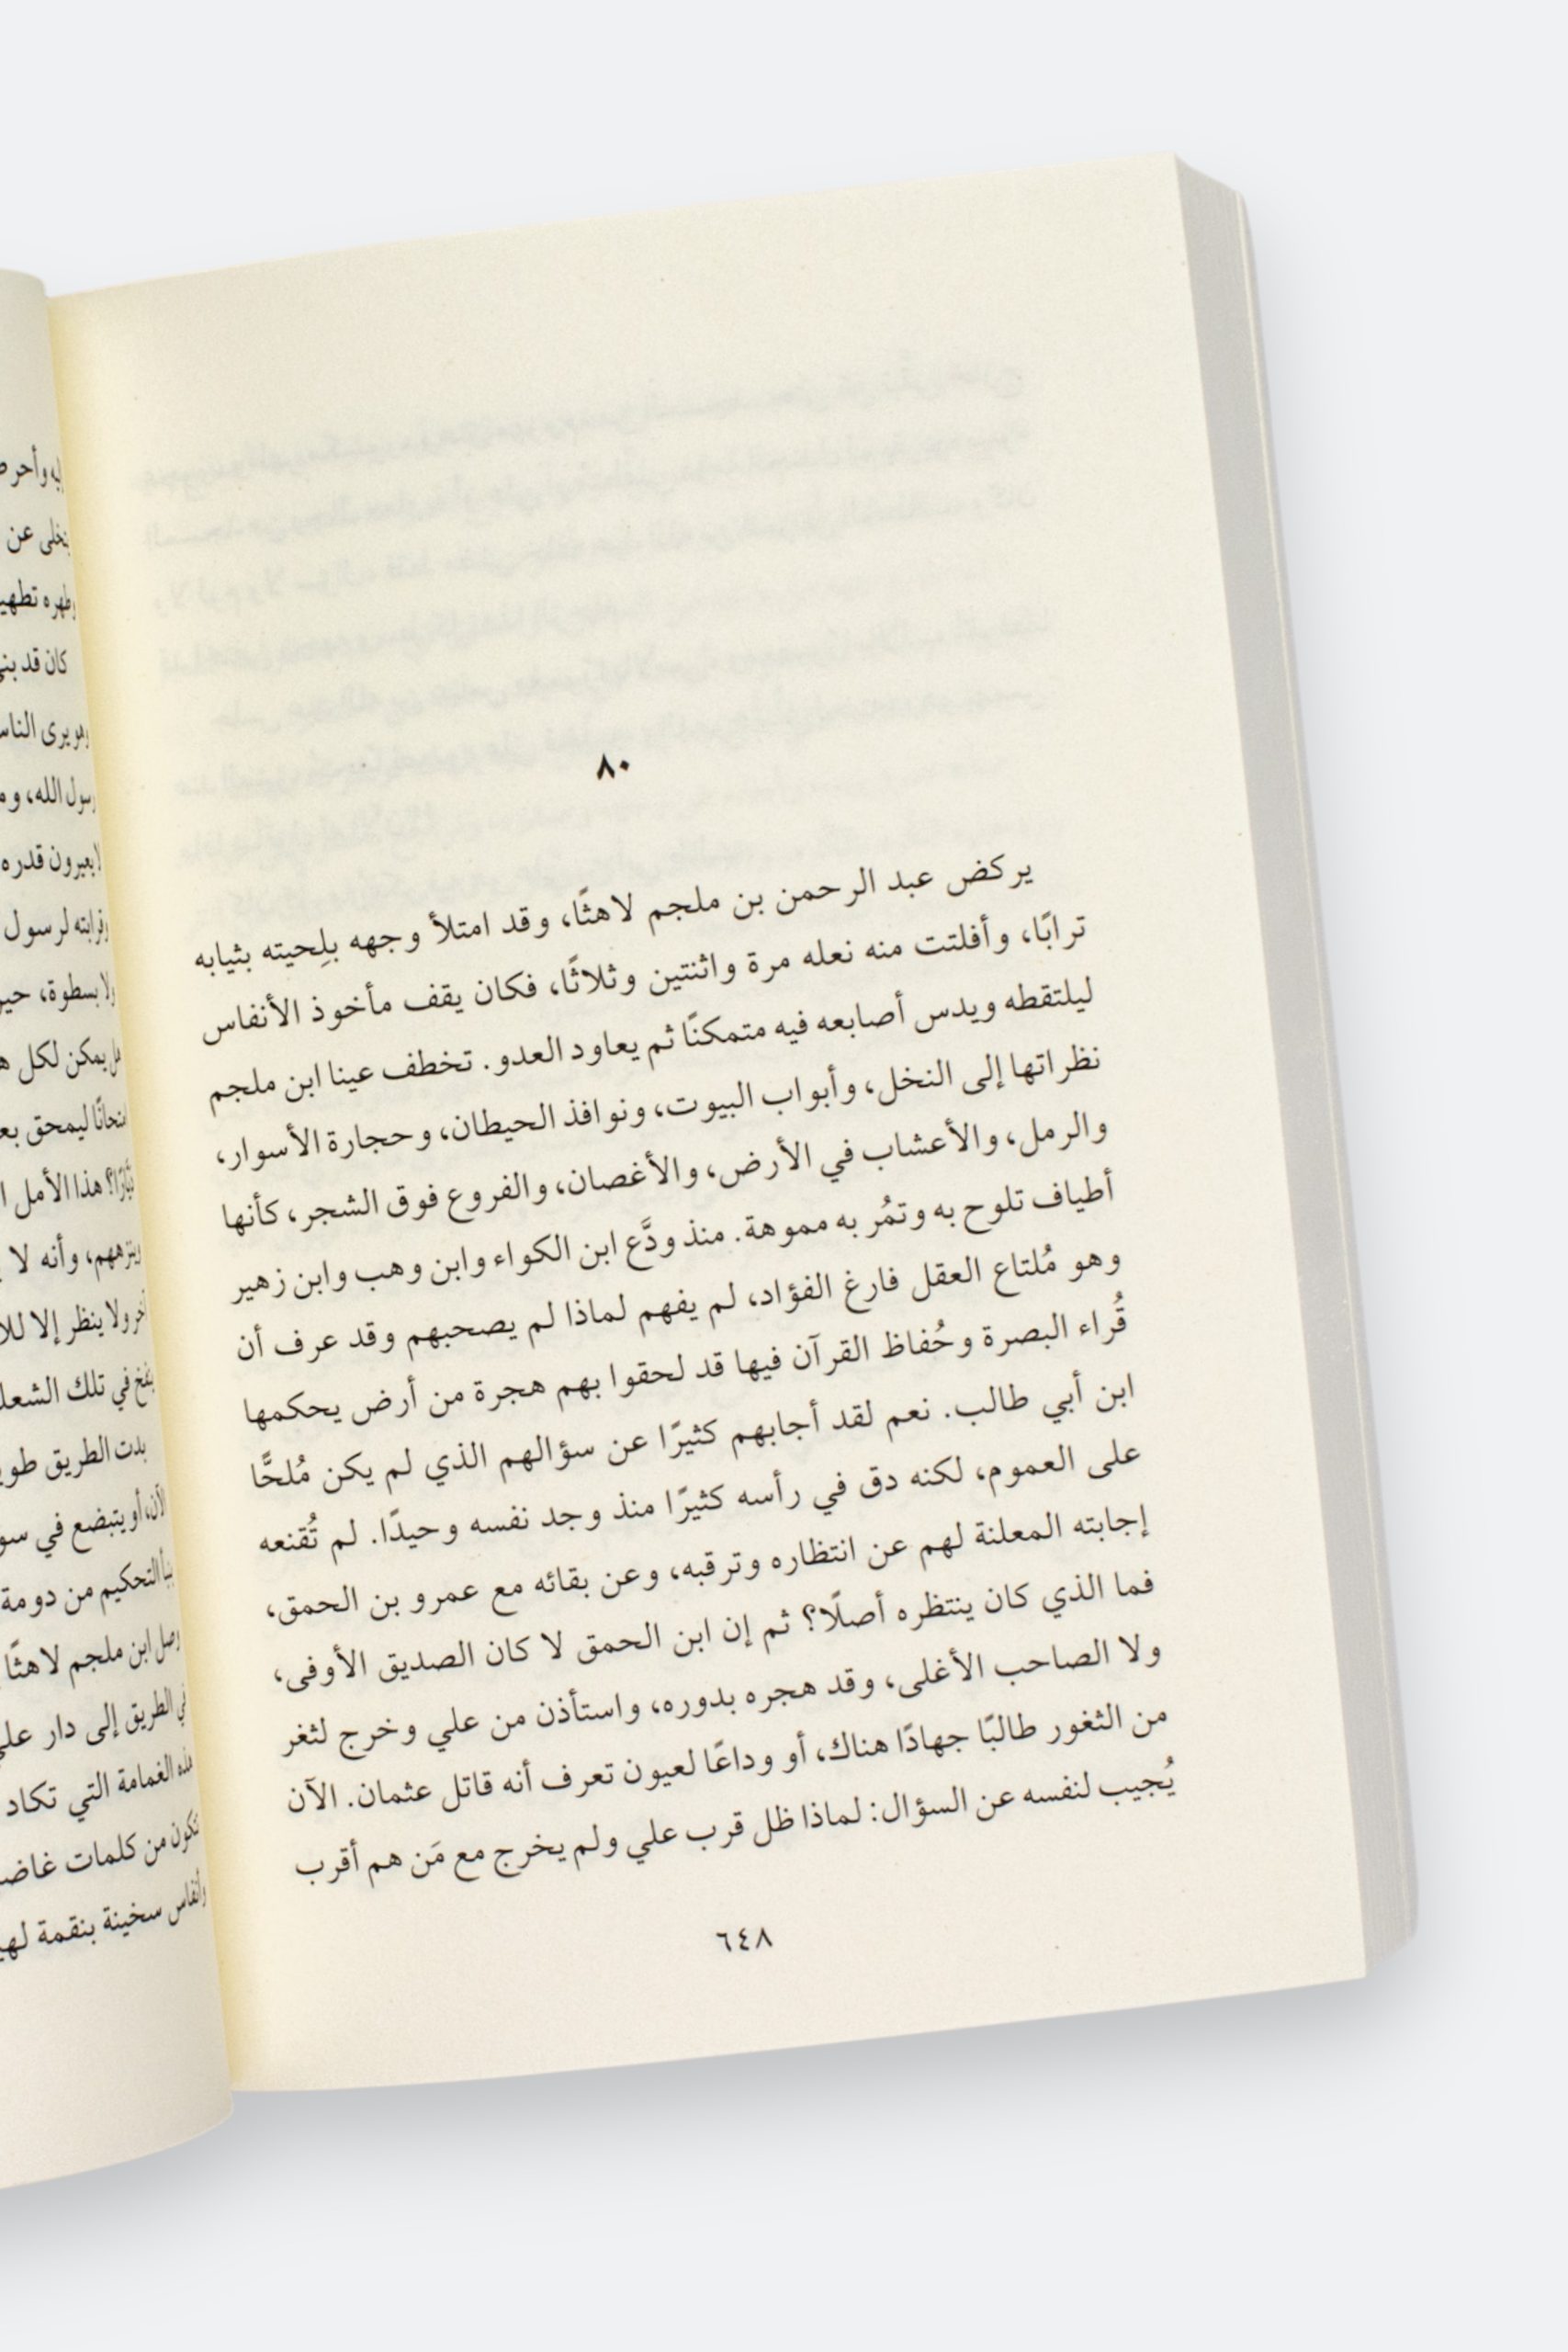 ٨٠
يركض عبد الرحمن بن ملجم لاهثًا، وقد امتلأ وجهه بلِحيته بثيابه
ترابًا، وأفلتت منه نعله مرة واثنتين وثلاثًا، فكان يقف مأخوذ الأنفاس
ليلتقطه ويدس أصابعه فيه متمكنًا ثم يعاود العدو. تخطف عينا ابن ملجم
نظراتها إلى النخل، وأبواب البيوت، ونوافذ الحيطان، وحجارة الأسوار،
والرمل، والأعشاب في الأرض، والأغصان، والفروع فوق الشجر، كأنها
أطياف تلوح به وتمُر به مموهة. منذ ودَّع ابن الكواء وابن وهب وابن زهير
وهو مُلتاع العقل فارغ الفؤاد، لم يفهم لماذا لم يصحبهم وقد عرف أن
قُراء البصرة وحُفاظ القرآن فيها قد لحقوا بهم هجرة من أرض يحكمها
ابن أبي طالب. نعم لقد أجابهم كثيرًا عن سؤالهم الذي لم يكن مُلحًّا
على العموم، لكنه دق في رأسه كثيرًا منذ وجد نفسه وحيدًا. لم تُقنعه
إجابته المعلنة لهم عن انتظاره وترقبه، وعن بقائه مع عمرو بن الحمق،
فما الذي كان ينتظره أصلًا؟ ثم إن ابن الحمق لا كان الصديق الأوفى،
ولا الصاحب الأغلى، وقد هجره بدوره، واستأذن من علي وخرج لثغر
من الثغور طالبًا جهادًا هناك، أو وداعًا لعيون تعرف أنه قاتل عثمان. الآن
يُجيب لنفسه عن السؤال: لماذا ظل قرب علي ولم يخرج مع مَن هم أقرب
٦٤٨
وأحر
عن
تطهير
كان قد
يرى الناس
رسول الله،
قدره
لرسول
بسطوة،
يمكن لكل
ليمحق
هذا الأمل
وأنه لا
ولا ينظر إلا
في تلك
بدت الطريق
أو يتبضع في
التحكيم من دومة
وصل ابن ملجم لاهثًا
الطريق إلى دار علي
الغمامة التي تكاد
من كلمات
سخينة بنقمة